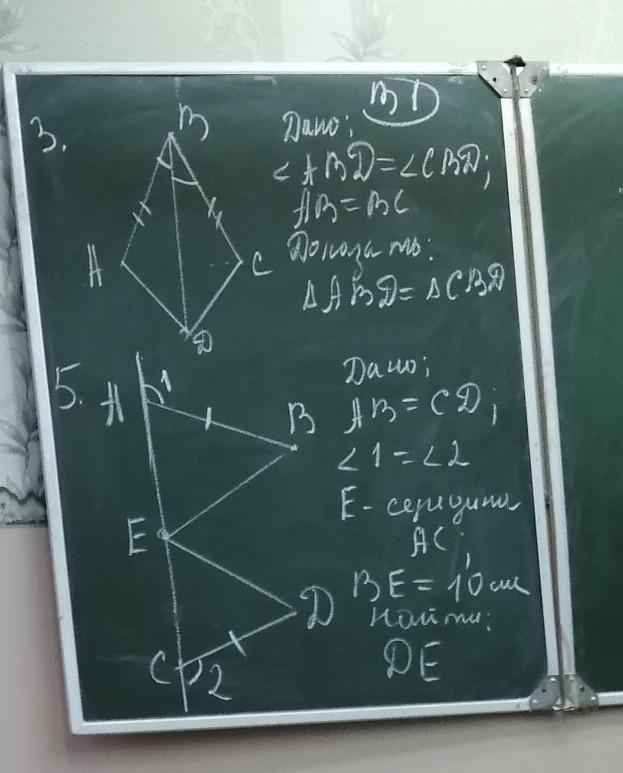 В1
3.
B
A
C
D
Дано:
<ABD=<CBD;
AB=BC
Доказать:
ΔABD=ΔCBD
5.
A
1
B
E
D
C
2
Дано;
AB=CD;
<1=<2
E-середина
AC;
BE=10см
Найти:
DE